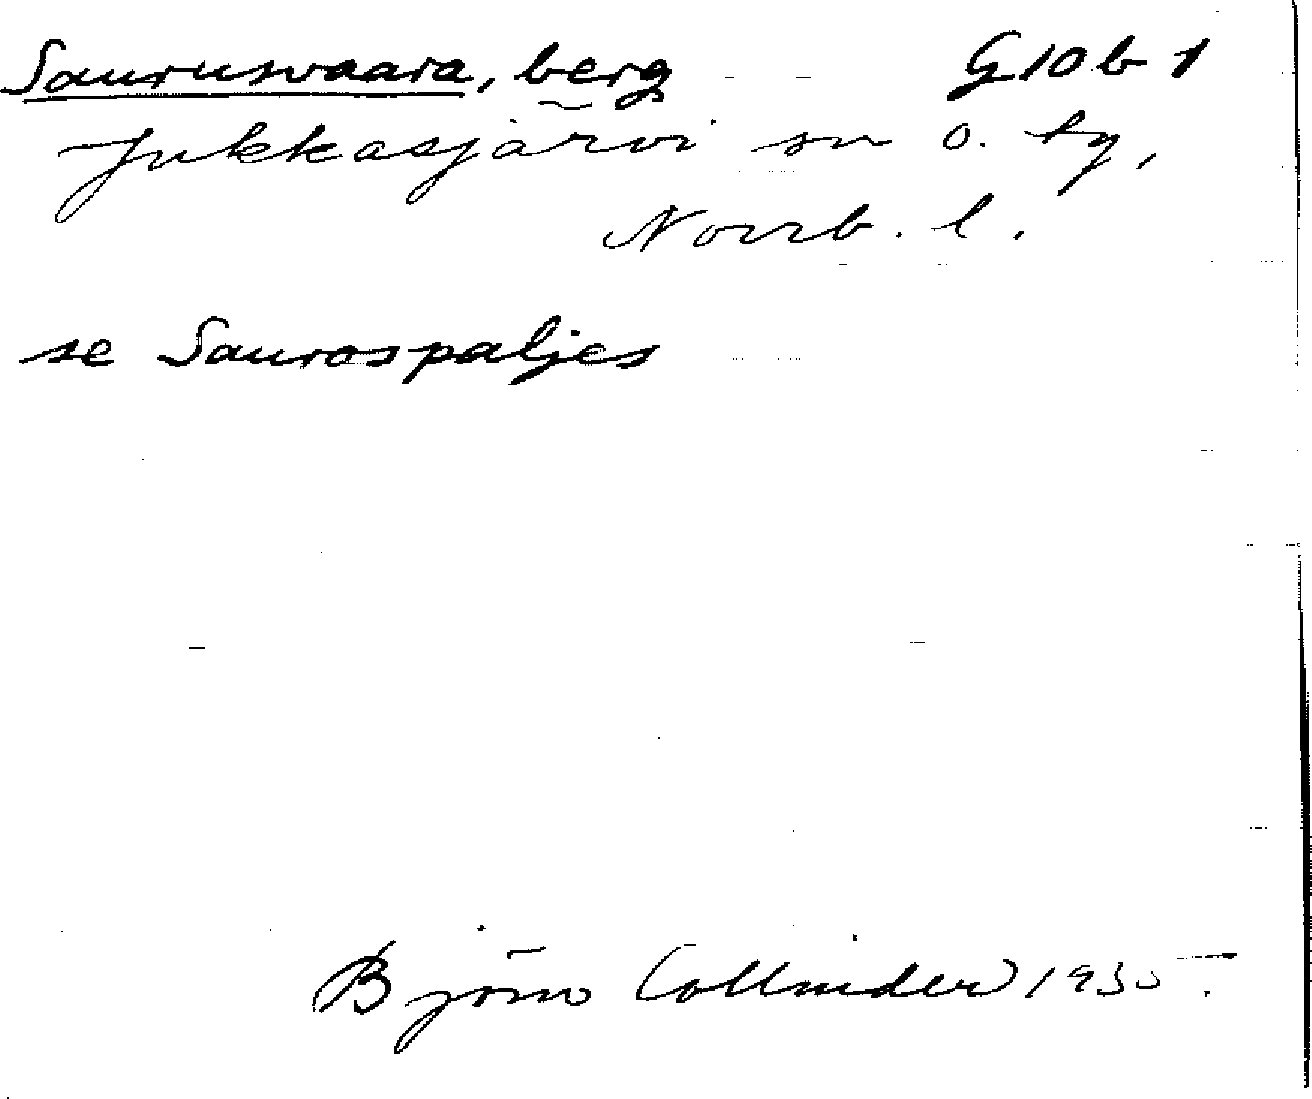 Sauruswaara, berg G10b1
Jukkasjärvi sn o. tg,
Norrb. l.
se Saurospaljes
Björn Collinder 1935.